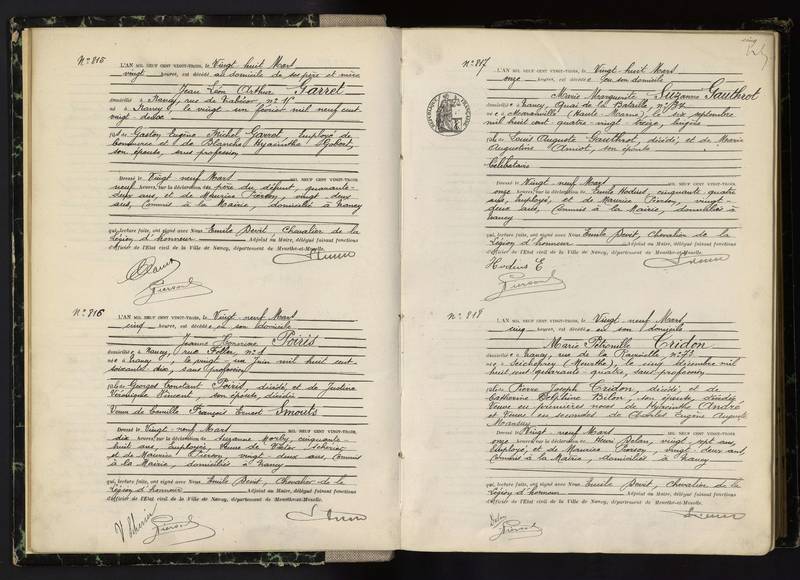 N° 815
L'AN MIL NEUF CENT VINGT-TROIS, le Vingt huit Mars
vingt heures, est décédé au domicile de ses père et mère
Jean Léon Arthur Garret
domicilié à Nancy, rue de
né à Nancy le vingt un février mil neuf cent
vingt deux
fils de Gaston Eugène Michel Garret, employé de
commerce et de Blanche Hyacinthe Gobert,
son épouse, sans profession
Dressé le Vingt neuf Mars MIL NEUF CENT VINGT-TROIS,
neuf heures, sur la déclaration du père du défunt, quarante-
deux ans, et de Maurice Pierson, vingt deux
ans, Commis à la Mairie, domiciliés à Nancy
qui, lecture faite, ont signé avec Nous Emile Devit, Chevalier de la
Légion d'honneur Adjoint au Maire, délégué faisant fonctions
d'Officier de l'Etat civil de la Ville de Nancy, département de Meurthe-et-Moselle.
Pierson
N° 816
L'AN MIL NEUF CENT VINGT-TROIS, le Vingt neuf Mars
cinq heures, est décédée en son domicile
Jeanne Honorine Poirés
domiciliée à Nancy, rue Foller, n° 1
née à Nancy le vingt un Juin mil huit cent
soixante dix, sans profession
fille de Georges Constant Poirés, décédé, et de Justine
Véronique Vincent, son épouse, décédée
Veuve de Camille François Ernest Smouls
Dressé le Vingt neuf Mars MIL NEUF CENT VINGT-TROIS,
dix heures, sur la déclaration de Suzanne cinquante-
huit ans, employée, Veuve de Victor
et de Maurice Pierson, vingt deux ans, Commis
à la Mairie, domiciliés à Nancy
qui, lecture faite, ont signé avec Nous Emile Devit, Chevalier de la
Légion d'honneur Adjoint au Maire, délégué faisant fonctions
d'Officier de l'Etat civil de la Ville de Nancy, département de Meurthe-et-Moselle.
Pierson
N° 817
L'AN MIL NEUF CENT VINGT-TROIS, le Vingt huit Mars
onze heures, est décédée en son domicile
Marie Marguerite Suzanne Gauthrot
domiciliée à Nancy, Quai de la Bataille, n°
née à (Haute Marne), le six septembre
mil huit cent quatre-vingt treize, lingère
fille de Louis Auguste Gauthrot, décédé, et de Marie
Augustine Amiot, son épouse
Célibataire
Dressé le Vingt neuf Mars MIL NEUF CENT VINGT-TROIS,
onze heures, sur la déclaration de Emile Hodius, cinquante quatre
ans, employé, et de Maurice Pierson, vingt-
deux ans, Commis à la Mairie, domiciliés à
Nancy
qui, lecture faite, ont signé avec Nous Emile Devit, Chevalier de la
Légion d'honneur Adjoint au Maire, délégué faisant fonctions
d'Officier de l'Etat civil de la Ville de Nancy, département de Meurthe-et-Moselle.
Hodius E
Pierson
N° 818
L'AN MIL NEUF CENT VINGT-TROIS, le Vingt neuf Mars
cinq heures, est décédée en son domicile
Marie Pétronille Cridon
domiciliée à Nancy, rue de la Ravinelle n° 73
née à Seicheprey (Meurthe), le cinq décembre mil
huit cent quarante quatre, sans profession
fille de Pierre Joseph Cridon, décédé, et de
Catherine Delphine Belon, son épouse, décédée
Veuve en premières noces de Hyacinthe André
et Veuve en secondes de Charles Eugène Auguste
Dressé le Vingt neuf Mars MIL NEUF CENT VINGT-TROIS,
onze heures, sur la déclaration de Henri Delon, vingt sept ans,
employé, et de Maurice Pierson, vingt deux ans,
Commis à la Mairie, domiciliés à Nancy
qui, lecture faite, ont signé avec Nous Emile Devit, Chevalier de la
Légion d'honneur Adjoint au Maire, délégué faisant fonctions
d'Officier de l'Etat civil de la Ville de Nancy, département de Meurthe-et-Moselle.
Pierson